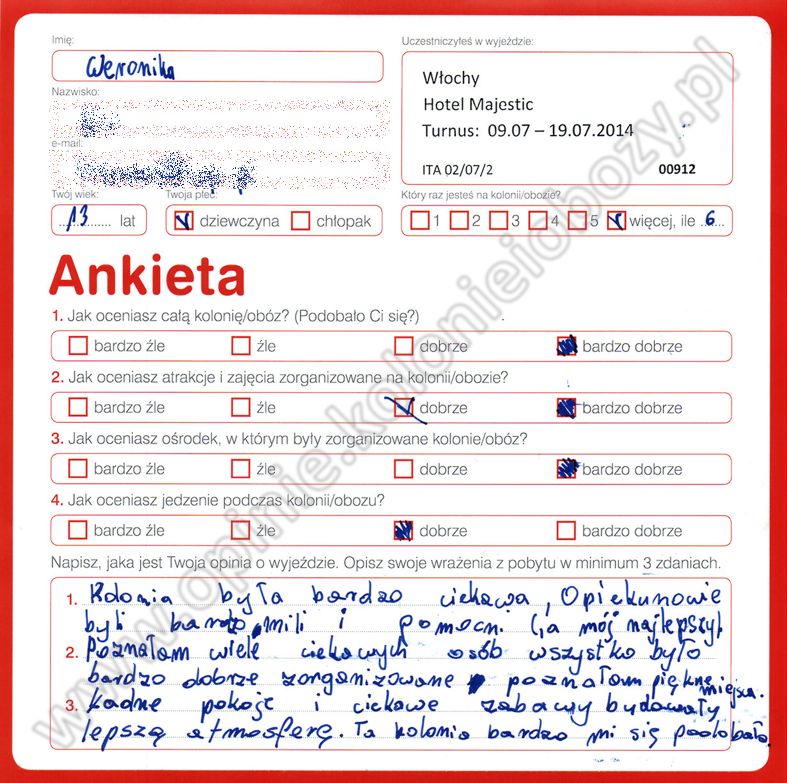 Imię:
Weronika
Nazwisko:
e-mail:
Uczestniczyłeś w wyjeździe:
Włochy
Hotel Majestic
Turnus: 09.07 – 19.07.2014
ITA 02/07/2 00912
Twój wiek:
13 lat
Twoja płeć:
dziewczyna chłopak
Który raz jesteś na kolonii/obozie?
1 2 3 4 5 więcej, ile 6
Ankieta
1. Jak oceniasz całą kolonię/obóz? (Podobało Ci się?)
bardzo źle źle dobrze bardzo dobrze
2. Jak oceniasz atrakcje i zajęcia zorganizowane na kolonii/obozie?
bardzo źle źle dobrze bardzo dobrze
3. Jak oceniasz ośrodek, w którym były zorganizowane kolonie/obóz?
bardzo źle źle dobrze bardzo dobrze
4. Jak oceniasz jedzenie podczas kolonii/obozu?
bardzo źle źle dobrze bardzo dobrze
Napisz, jaka jest Twoja opinia o wyjeździe. Opisz swoje wrażenia z pobytu w minimum 3 zdaniach.
1. Kolonia była bardzo ciekawa, Opiekunowie
byli bardzo mili i pomocni (, a mój najlepszy).
2. Poznałam wiele ciekawych osób wszystko było
bardzo dobrze zorganizowane poznałam piękne miejsca.
3. Ładne pokoje i ciekawe zabawy budowały
lepszą atmosferę. Ta kolonia bardzo mi się podobała.
www.opinie.kolonieiobozy.pl